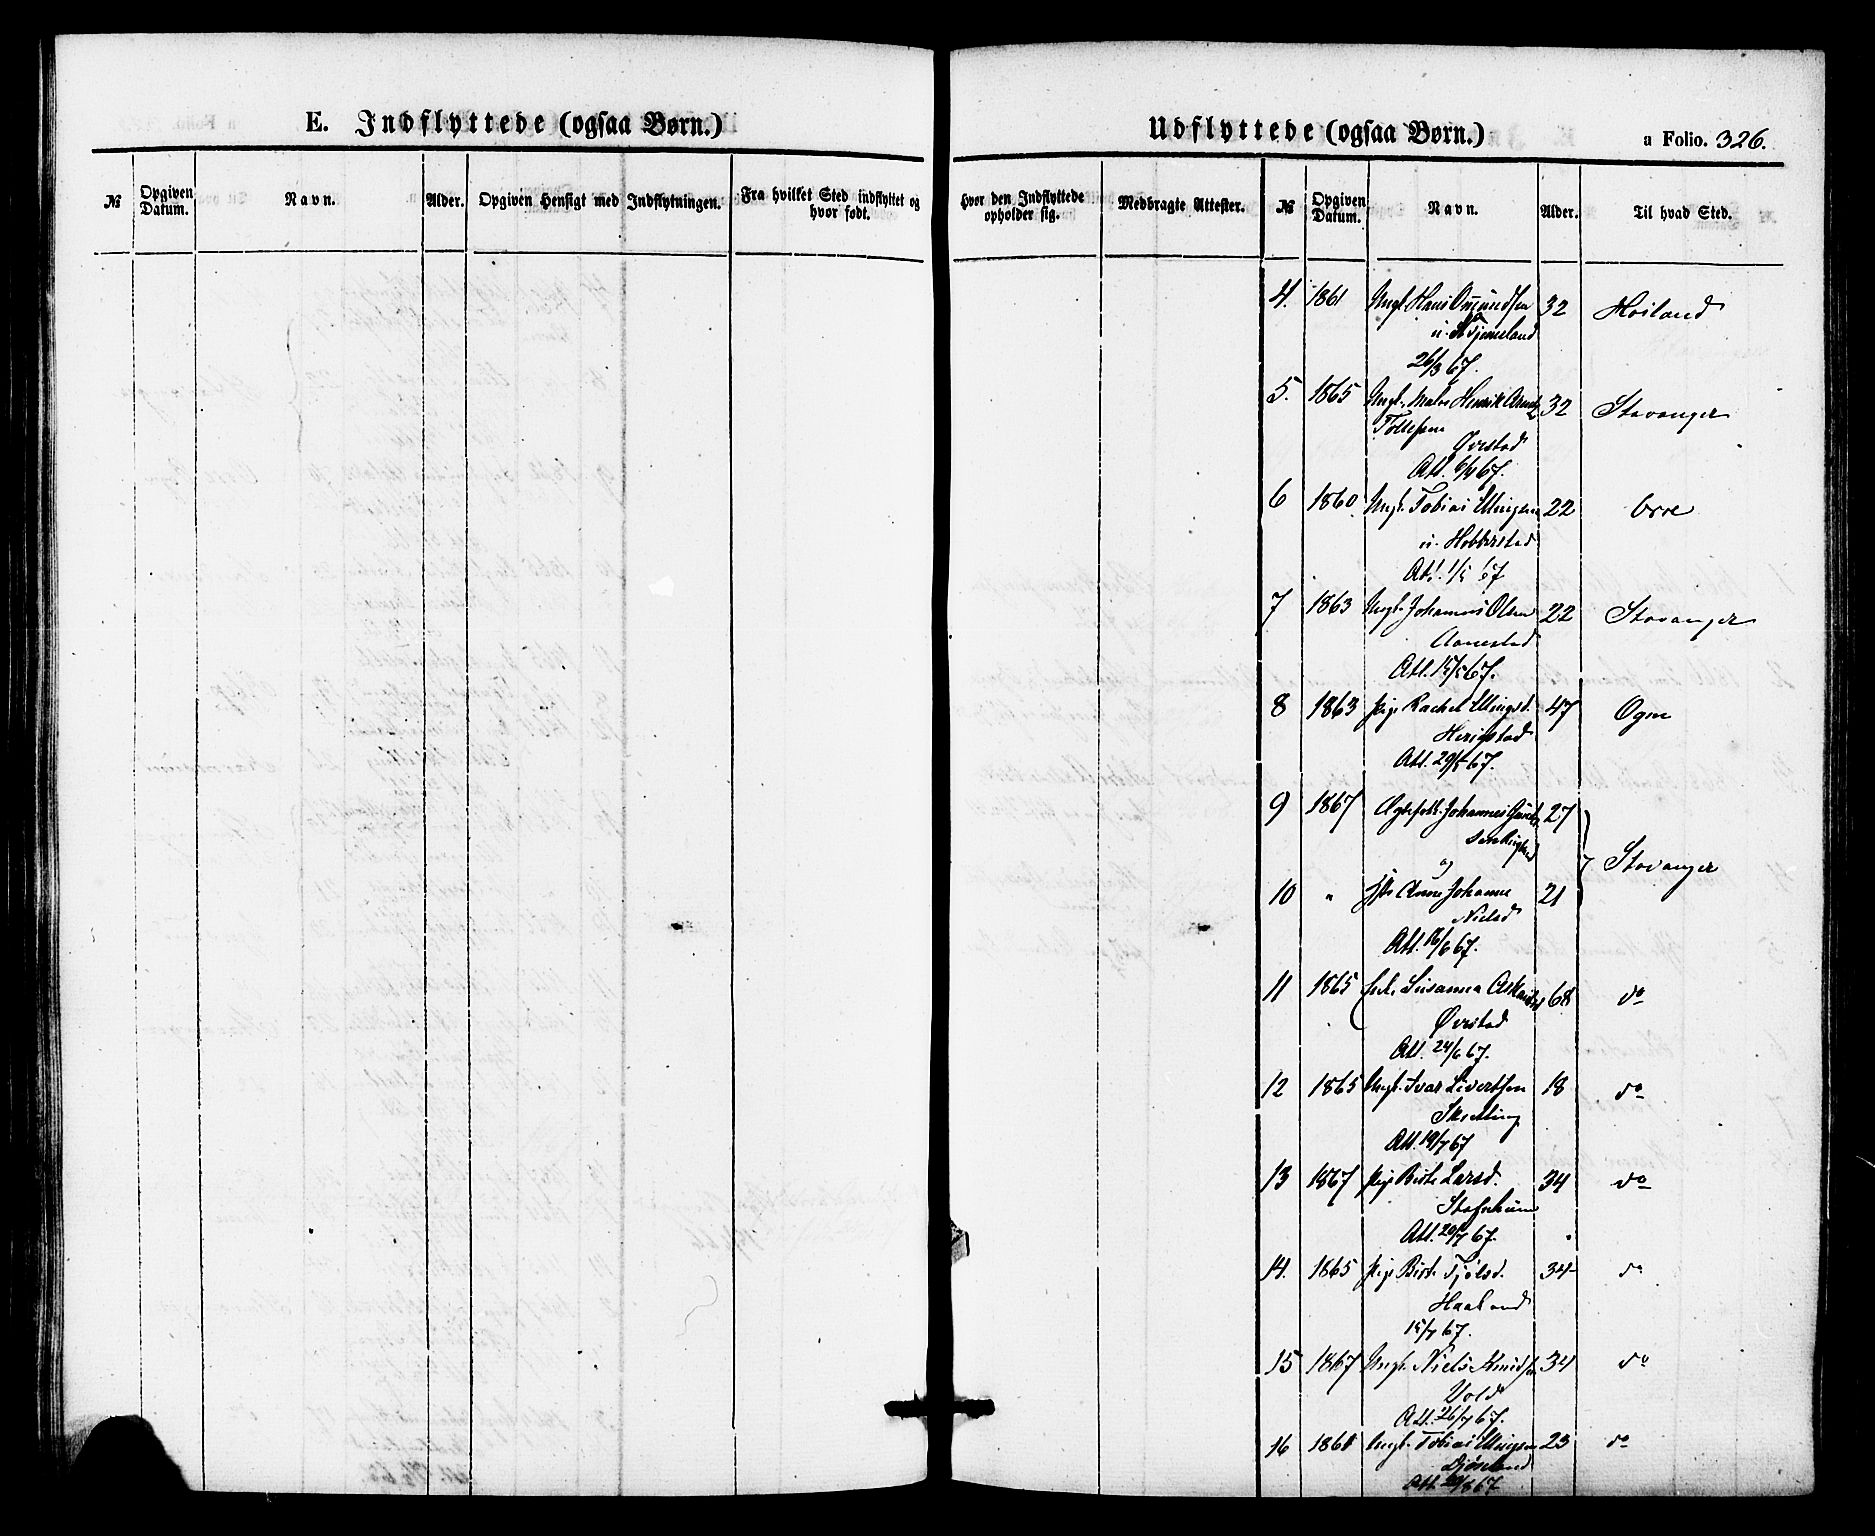 E. Indflyttede (ogsaa Børn.)
№ Opgiven Datum. Navn. Alder. Opgiven Hensigt med Indflytningen. Fra hvilket Sted indflyttet og hvor født.
Udflyttede (ogsaa Børn.)
a Folio. 326.
Hvor den Indflyttede opholder sig. Medbragte Attester. № Opgiven Datum. Navn. Alder. Til hvad Sted.
4. 1861 Ungk. Hans 32 Høiland
26/3 67.
5. 1865 Ungk. Henrik 32 Stavanger
Tollefsen
Øvestad
Att. 6/4 67.
6 1860 Ungk. Tobias Ellingsen 22 Orre
Hobberstad
Att. 1/5 67
7 1863 Ungk. Johannes Olsen 22 Stavanger
Aanestad
Att. 15/5 67.
8 1863 pige Rachel Ellingsd. 47 Ogne
Herigstad
Att. 29/5 67.
9 1867 Johannes 27
og
Stavanger
10 " Anne Johanne 21
Nielsd
Att. 16/6 67.
11 1865 Enke Susanna 68 do
Øvestad
Att. 24/6 67.
12 1865 Ungk. Ivar Sivertsen 18 do
Att. 19/7 67
13 1867 pige Berte Larsd. 34 do
Att. 20/7 67.
14. 1865 pige Berte 34 do
Haaland
15/7 67.
15 1867 Ungk. Niels 34 do
Vold
Att. 26/7 67.
16 1861 Ungk. Tobias Ellingsen 23 do